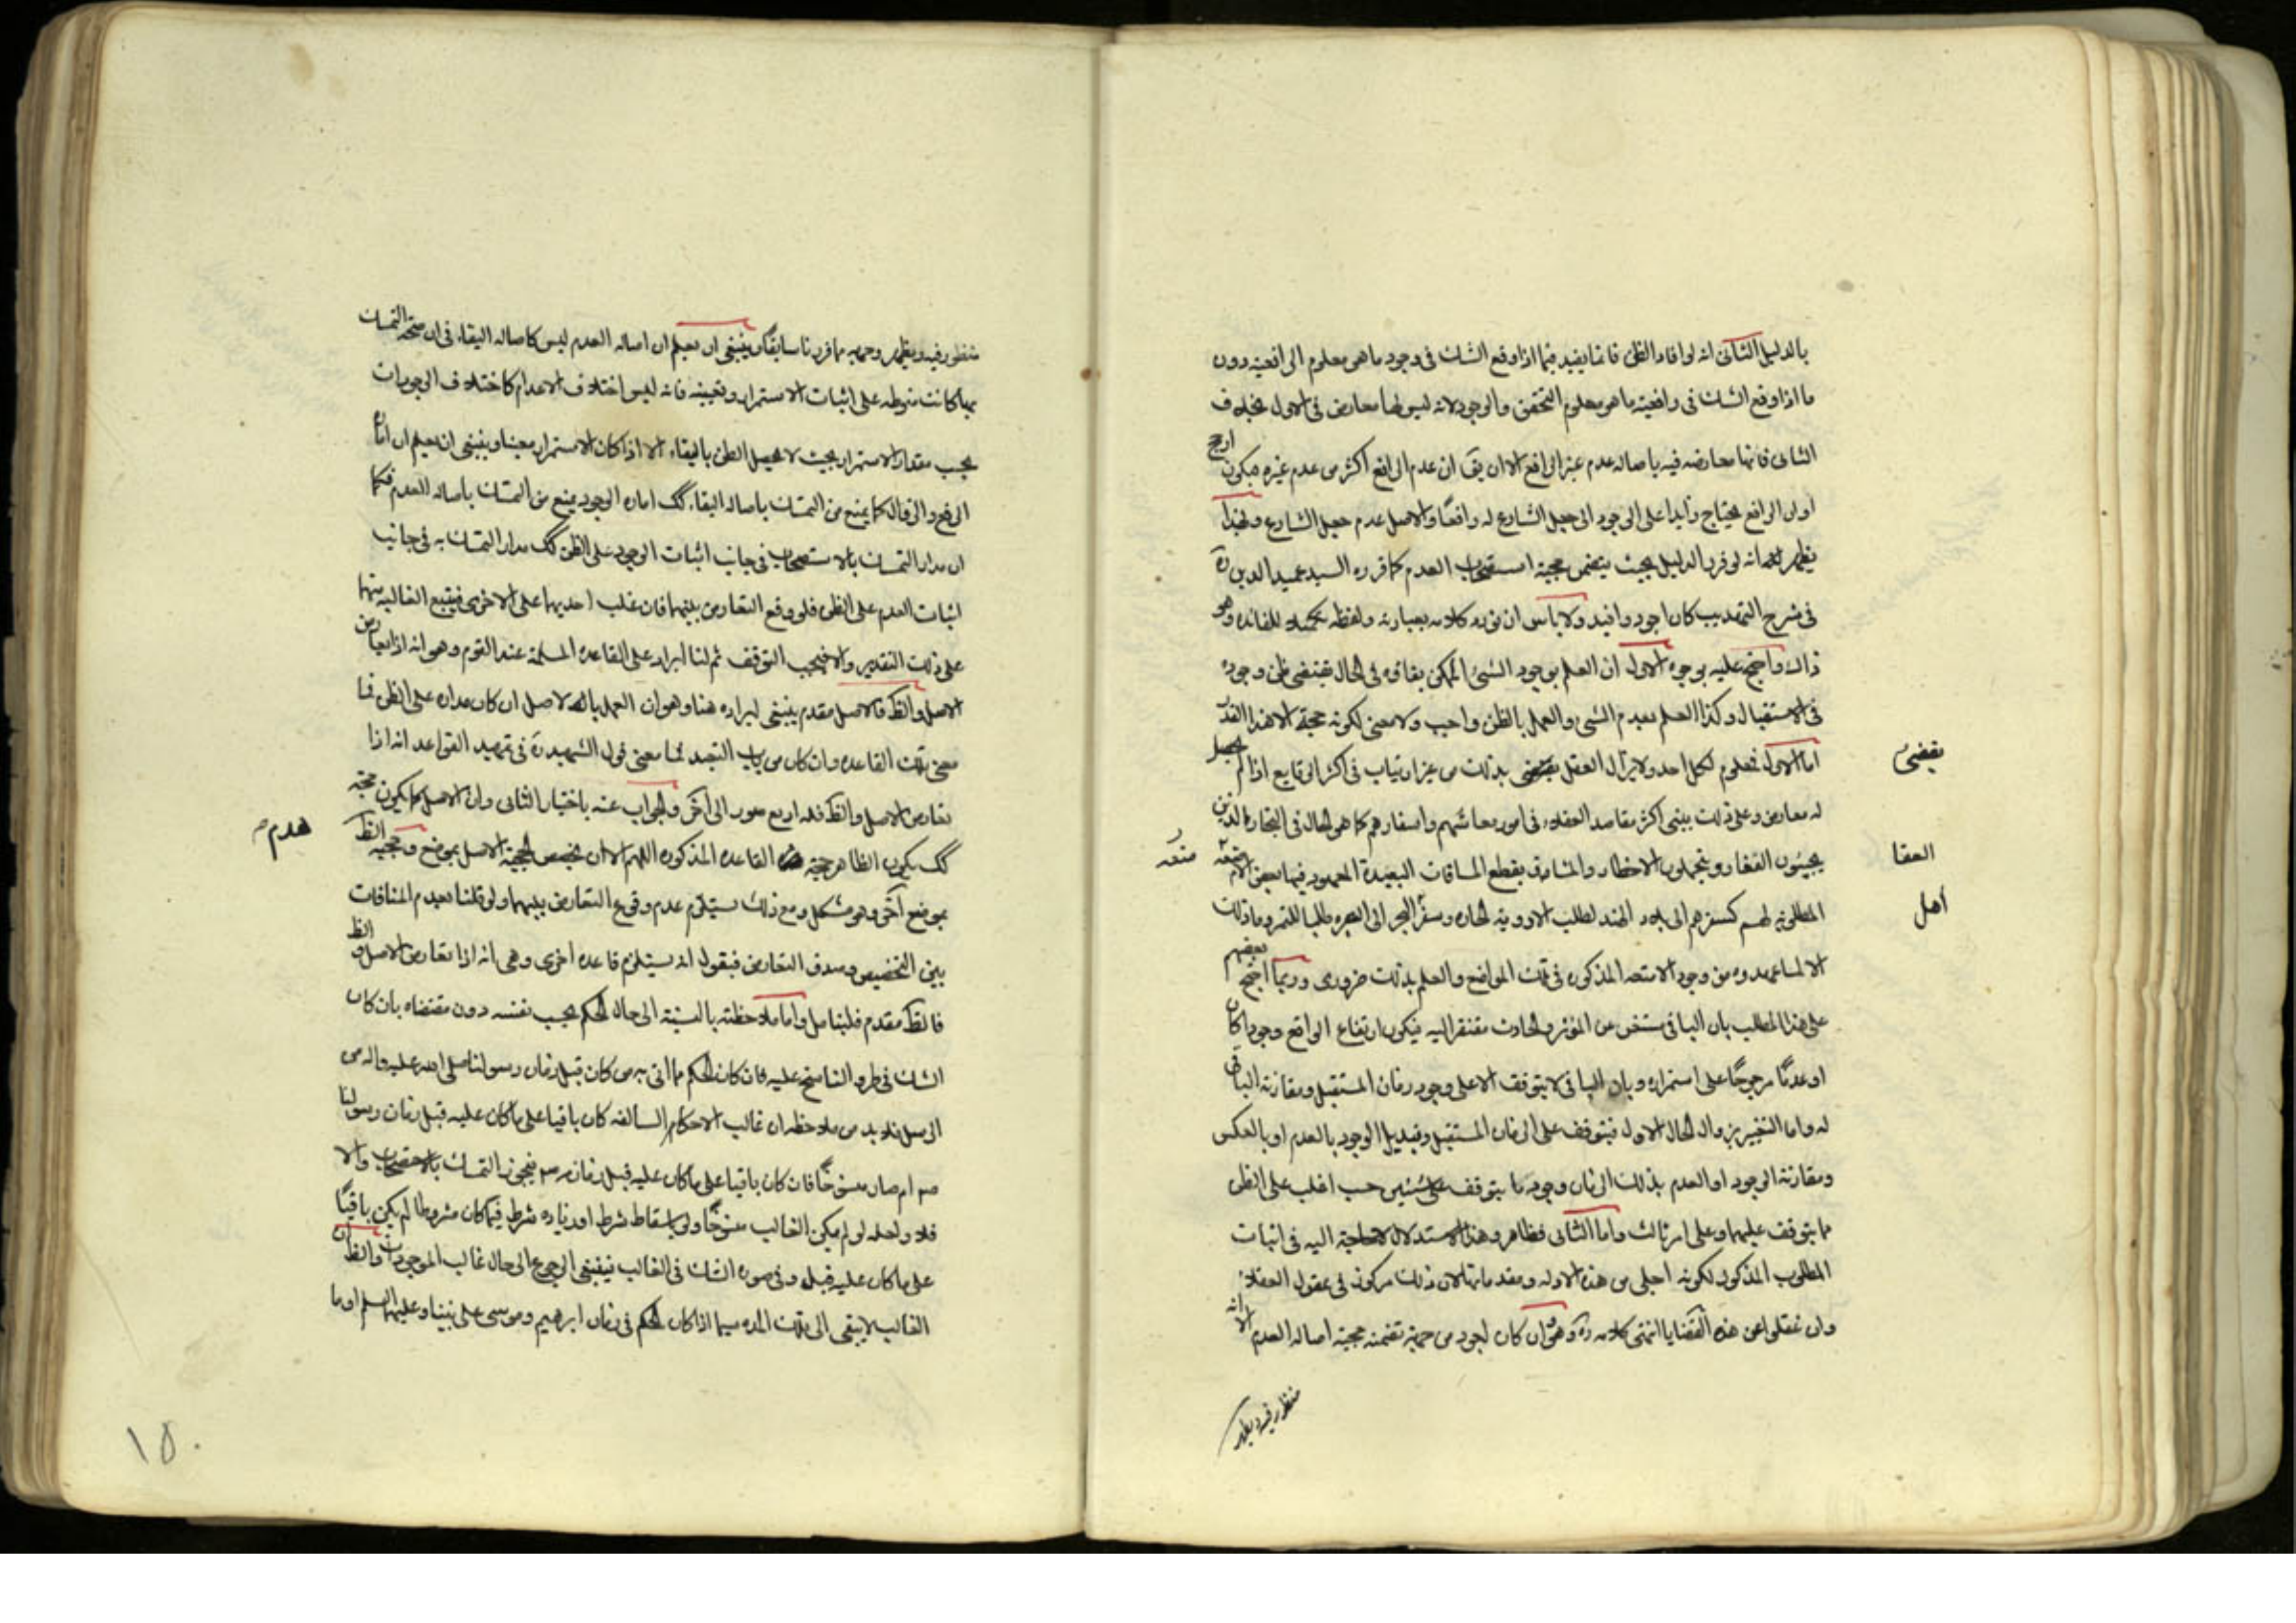 بالدليل الثانى انه لو افاد الظن فانما يفيد فيما اذا وقع الشك فى وجود ما هو معلوم الرافعية دون
ما اذا وقع الشك فى رافعية ما هو معلوم التحقق والوجود لانه ليس لها معارض فى الاول بخلاف
الثانى فانها معارضه فيه باصاله عدم غير الرافع الا ان يق ان عدم الرافع اكثر من عدم غيره فيكون ارجح
او ان الرافع يحتاج زايدا على الوجود الى جعل الشارع له رافعًا والاصل عدم جعل الشارع ولهذا
يظهر انه لو قرر الدليل بحيث يتضمن حجية استصحاب العدم كما قرره السيد عميد الدين ره
فى شرح التهذيب كان اجود وافيد ولا باس ان نورد كلامه بعبارته ولفظه تكميلا للفائده وهو
ذاك واحتج عليه بوجوه الاول ان العلم بوجود الشئ الممكن بقاؤه فى الحال يقتضى ظن وجوده
فى الاستقبال وكذا العلم بعدم الشئ والعمل بالظن واجب ولا معنى لكونه حجة الا هذا القدر
اما الاول فمعلوم لكل احد ولا يزال العقل يقضى بذلك من غير ارتياب فى اكثر الوقايع اذا لم يحصل
له معارض وعلى ذلك يبنى اكثر مقاصد العقلاء فى امور معاشهم واسفارهم كما هو الحال فى التجار الذين
يجيبون القفار ويتحملون الاخطار والمشاق بقطع المسافات البعيدة المعهود فيها بعض الامتعة
المطلوبه لهم كسفرهم الى بلاد الهند لطلب الادوية الحاره وسفر البحر الى البصره طلبا للتمر وما ذلك
الا لما عهدوه من وجود الامتعه المذكوره فى تلك المواضع والعلم بذلك ضرورى وربما احتج بعضهم
على هذا المطلب بان الباقى مستغن عن المؤثر والحادث مفتقر اليه فيكون ارتفاع الواقع وجودا كان
او عدمًا مرجوحًا على استمراره وبان الباقى لا يتوقف الا على وجود زمان المستقبل ومقارنة الباقى
له واما التغيير بزوال الحال الاول فيتوقف على الزمان المستقبل وتبديل الوجود بالعدم او بالعكس
ومقارنة الوجود او العدم بذلك الزمان وجود ما يتوقف على شيئين حسب اغلب على الظن
مما يتوقف عليهما وعلى امر ثالث واما الثانى فظاهر وهذا الاستدلال لا حاجة اليه فى اثبات
المطلوب المذكور لكونه اجلى من هذه الادله ومقدماتها لان ذلك مركوز فى عقول العقلاء
وان غفلوا عن هذه القضايا انتهى كلامه ره وهو وان كان اجود من جهة تضمنه حجية اصالة العدم الا انه
منظور فيه ويظهر
يقضى
العقا
أهل
متعه
منظور فيه ويظهر وجهه مما قررنا سابقا وينبغى ان يعلم ان اصاله العدم ليس كاصاله البقاء فى ان صحة التمسك
بها كانت منوطه على اثبات الاستمرار وتعيينه فانه ليس اختلاف الاعدام كاختلاف الوجودات
بحسب مقدار الاستمرار بحيث لا يحصل الظن بالبقاء الا اذا كان الاستمرار معينا وينبغى ان يعلم ان امارة
الرفع والزوال كما يمنع من التمسك باصاله البقاء كك اماره الوجود يمنع من التمسك باصاله العدم فكما
ان مدار التمسك بالاستصحاب فى جانب اثبات الوجود على الظن كك مدار التمسك به فى جانب
اثبات العدم على الظن فلو وقع التعارض بينهما فان غلب احديهما على الاخرى فيتبع الغالبة منها
على ذلك التقدير والا فيجب التوقف ثم لنا ايراد على القاعده المسلمة عند القوم وهو انه اذا تعارض
الاصل والظ فالاصل مقدم ينبغى ايراده هنا وهو ان العمل بالاصل ان كان مداره على الظن فما
معنى تلك القاعده وان كان من باب التعبد فما معنى قول الشهيد ره فى تمهيد القواعد انه اذا
تعارض الاصل والظ فله اربع صور الى آخر والجواب عنه باختيار الثانى وان الاصل كما يكون حجة
كك يكون الظاهر حجة القاعده المذكوره اللهم الا ان يخصص حجية الاصل بموضع وحجية الظ
بموضع آخر وهو مشكل ومع ذلك يستلزم عدم وقوع التعارض بينهما ولو قلنا بعدم المنافات
بين التخصيص وصدق التعارض فبقول انه يستلزم قاعده اخرى وهى انه اذا تعارض الاصل والظ
فالظ مقدم فليتامل واما ملاحظته بالنسبة الى حال الحكم بحسب نفسه دون مقتضاه بان كان
الشك فى طرو الناسخ عليه فان كان الحكم مما اتى به من كان قبل زمان رسولنا صلى الله عليه واله من
الرسل فلا بد من ملاحظه ان غالب الاحكام السالفه كان باقيا على ما كان عليه قبل زمان رسولنا
صم ام صار منسوخًا فان كان باقيا على ما كان عليه قبل زمانه صم فيجوز التمسك بالاستصحاب والا
فلا ولعله لو لم يكن الغالب منسوخًا ولو باسقاط شرط او زياده شرط فيما كان مشروطا لم يكن باقيًا
على ما كان عليه قبل وفى صوره الشك فى الغالب فينبغى الرجوع الى حال غالب الموجودات والظ ان
الغالب لا يبقى الى تلك المده سيما اذا كان الحكم فى زمان ابرهيم وموسى على نبينا وعليهما السلم او ما
هدم
١٥٠